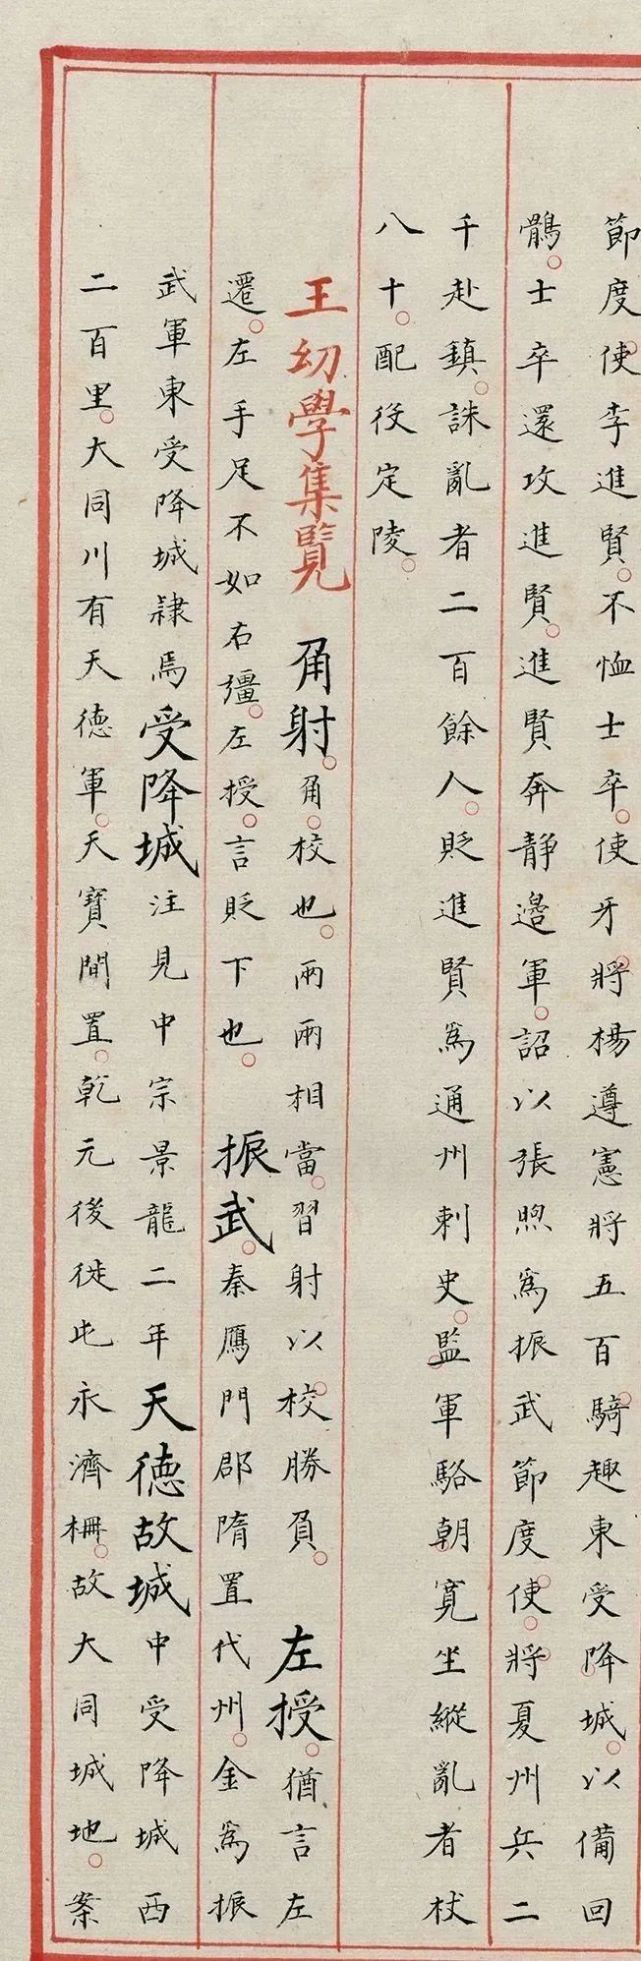 節度使李進賢。不恤士卒。使牙將楊遵憲將五百騎趣東受降城。以備回
鶻。士卒還攻進賢。進賢奔靜邊軍。詔以張煦爲振武節度使。將夏州兵二
千赴鎮。誅亂者二百餘人。貶進賢爲通州刺史。監軍駱朝寛坐縱亂者杖
八十。配役定陵。
王幼學集覽 角射。角。校也。兩兩相當。習射以校勝負。 左授。猶言左
遷。左手足不如右彊。左授。言貶下也。 振武。秦鴈門郡隋置代州。金爲振
武軍東受降城隷焉受降城注見中宗景龍二年天德故城中受降城西
二百里。大同川有天德軍。天寶間置。乾元後徙屯永濟柵。故大同城地。案